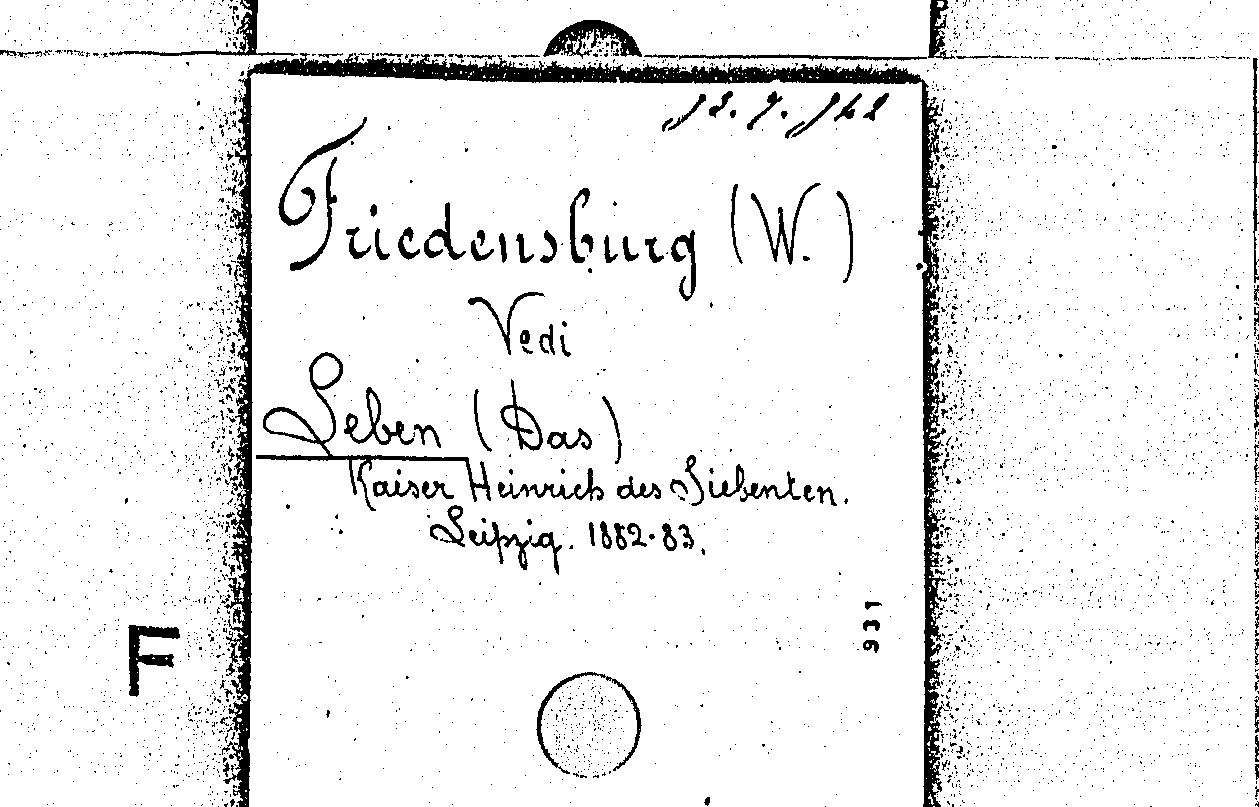 13.7.J42
Friedensburg (W.)
Vedi
Leben (Das)
Kaiser Heinrich des Siebenten.
Leipzig. 1882-83.
931
F